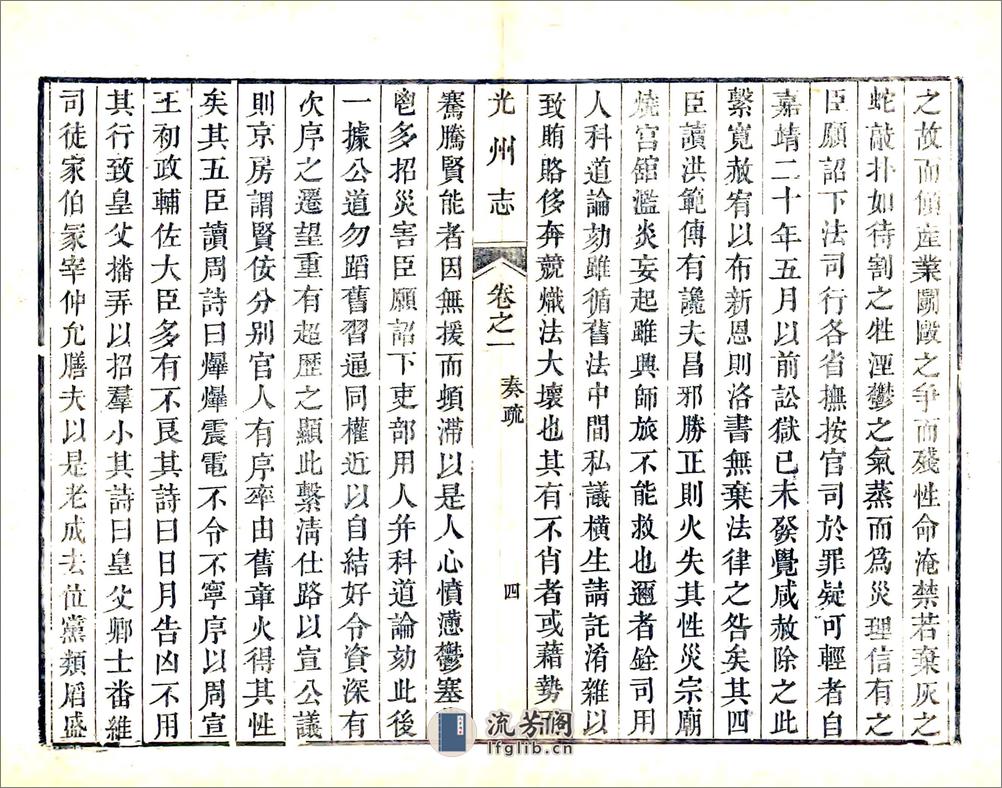 之故而傾產業鬬毆之爭而殘性命淹禁若棄灰之
蛇敲扑如待割之牲湮鬱之氣蒸而為災理信有之
臣願詔下法司行各省撫按官司於罪疑可輕者自
嘉靖二十年五月以前訟獄已未發覺咸赦除之此
繫寬赦宥以布新恩則洛書無棄法律之咎矣其四
臣讀洪範傳有讒夫昌邪勝正則火失其性災宗廟
燒宮館濫炎妄起雖興師旅不能救也邇者銓司用
人科道論劾雖循舊法中間私議橫生請託淆雜以
致賄賂侈奔競熾法大壞也其有不肖者或藉勢
光州志 卷之一 奏疏 四
騫騰賢能者因無援而頓滯以是人心憤懣鬱塞
鬯多招災害臣願詔下吏部用人并科道論劾此後
一據公道勿蹈舊習通同權近以自結好令資深有
次序之遷望重有超歷之顯此繫清仕路以宣公議
則京房謂賢佞分別官人有序率由舊章火得其性
矣其五臣讀周詩曰爗爗震電不令不寧序以周宣
王初政輔佐大臣多有不良其詩曰日月告凶不用
其行致皇父播弄以招羣小其詩曰皇父卿士番維
司徒家伯冢宰仲允膳夫以是老成去位黨類盾盛
流芳閣
lfglib.cn